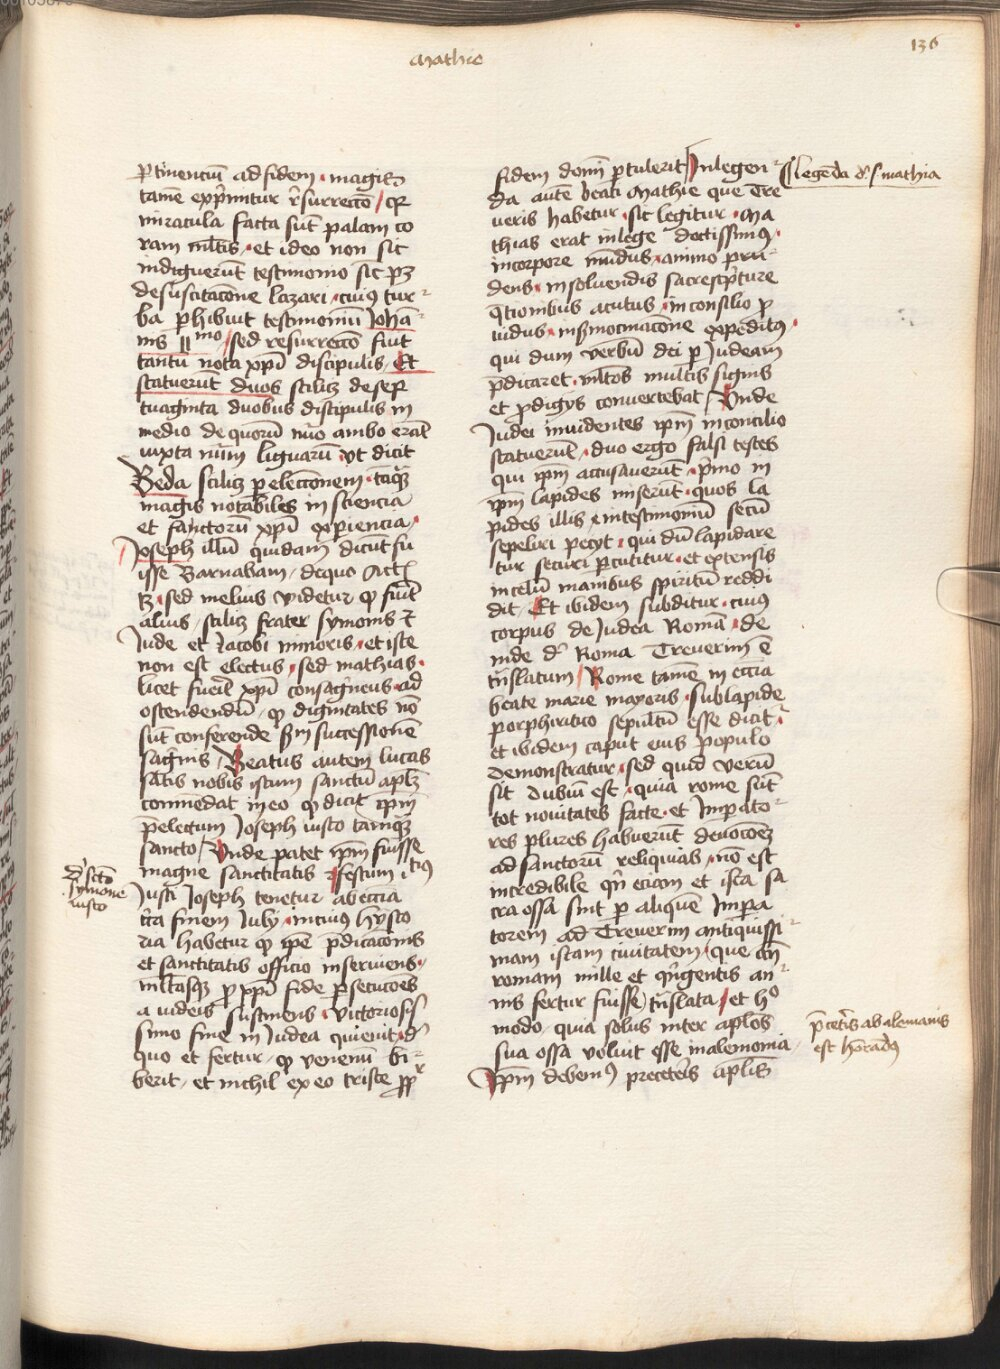 Mathie
136
ptinenciu ad fidem magis
tame exprimitur resurrectio / qr
miracula facta sut palam co
ram mltis et ideo non sic
indiguerut testimonio sic p3
de suscitacone lazari cuius tur
ba phibuit testimoniu Joha
nis 11mo / sed resurreccio fuit
tantu nota xpi discipulis Et
statuerut duos scilz de sep
tuaginta duobus discipulis in
medio de quoru nuo ambo erat
iuxta num liguaru vt dicit
Beda scilz p eleccionem tamq3
magis notabiles in sciencia
et sanctoru xpi experiencia
Joseph illu quidam dicut fu
isse Barnabam / de quo Act
sed melius videtur q fuit
alius / scilz frater symonis et
Jude et Jacobi minoris et iste
non est electus sed mathias
licet fuerit xpi consagneus ad
ostendendu q dignitates no
sut conferende sm successione
sagnis / Beatus autem lucas
satis nobis istum sanctu aplm
comedat in eo q dicit ipm
pelectum Joseph iusto tamq3
sancto / Unde patet ipm fuisse
magne sanctitatis festum istius
Justi Joseph tenetur ab ecclia
cira finem July in cuius hysto
ria habetur q ipe pdicacionis
et sanctitatis officio inserviens
mltasq3 p xpi fide psecucoes
a iudeis sustinens victoriosis
simo fine in Judea quieuit d
quo et fertur q venenu bi
berit et nichil ex eo triste ppr
d scto
symone
iusto
fidem domi ptulerit Inlegen
da aute beati Mathie que Tre
veris habetur sic legitur Ma
thias erat in lege doctissimus
in corpore mudus animo pru
dens in soluendis sacre scpture
qtionibus acutus in consilio p
uidus in smocinacone expeditus
qui dum verbu dei p Judeam
pdicaret mltos multis signis
et pdigys convertebat / Unde
Judei invidentes ipm in concilio
statuerut duo ergo falsi testes
qui ipm accusaverut pmo in
ipm lapides miserut quos la
pides illis in testimoniu secu
sepeliri pecyt qui du lapidare
tur securi pcutitur et extensis
in celu manibus spiritu reddi
dit Et ibidem subditur cuius
corpus de Judea Roma de
inde d Roma Treverim e
tnslatum / Rome tame in eccia
beate marie mayoris sub lapide
porphiritico sepultu esse dicit
et ibidem caput eius populo
demonstratur sed quid veru
sit dubiu est quia rome sut
tot novitates facte et Impato
res plures habuerut devocoe3
ad sanctoru reliquias no est
incredibile qn eciam et ista sa
cra ossa sint p aliquem Impa
torem ad Treverim antiquissi
mam istam civitatem que an
romam mille et qngentis an
nis fertur fuisse tnslata et ho
modo quia solus inter aplos
sua ossa voluit esse in alemonia
Ipm debemus pre ceteris aplis
Legeda d s mathia
p cetis ab alemanis
est horadus